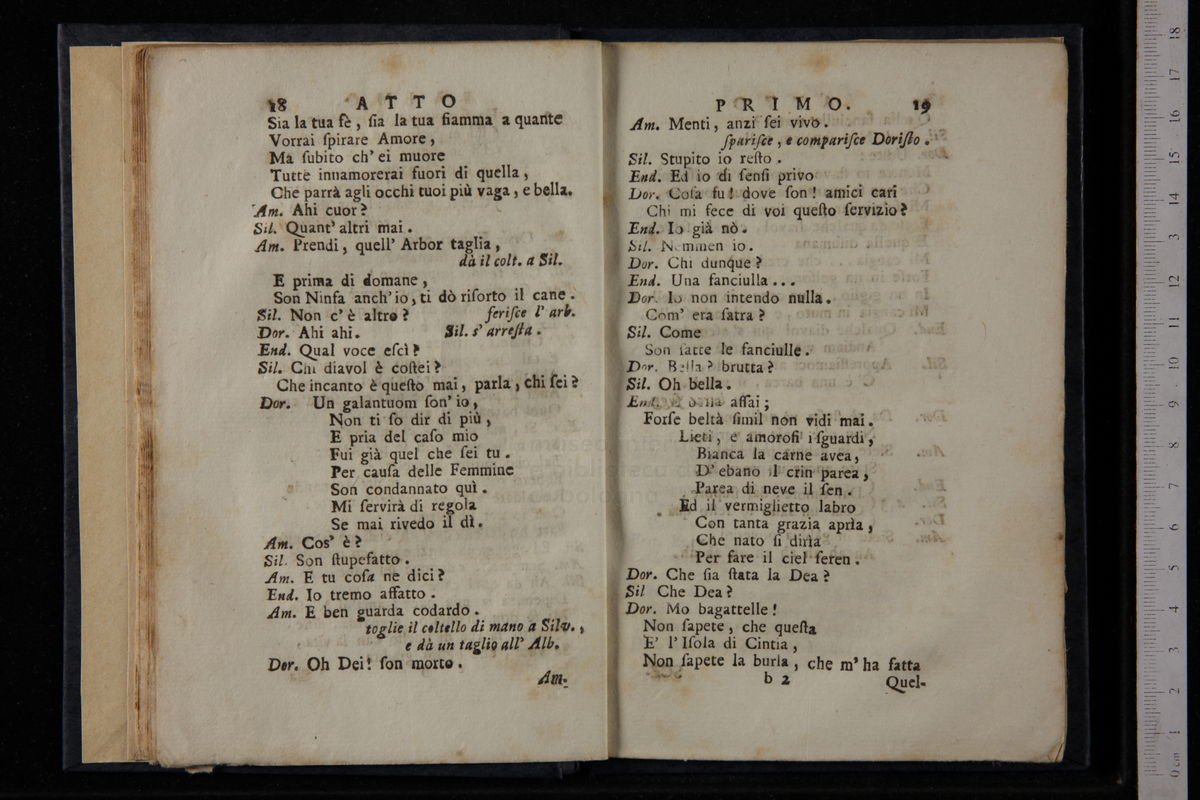 18 ATTO
Sia la tua fè, ſia la tua fiamma a quante
Vorrai ſpirare Amore,
Ma ſubito ch' ei muore
Tutte innamorerai fuori di quella,
Che parrà agli occhi tuoi più vaga, e bella.
Am. Ahi cuor?
Sil. Quant' altri mai.
Am. Prendi, quell' Arbor taglia,
dà il colt. a Sil.
E prima di domane,
Son Ninfa anch' io, ti dò riſorto il cane.
Sil. Non c' è altro? feriſce l' arb.
Dor. Ahi ahi. Sil. s' arreſta.
End. Qual voce eſcì?
Sil. Chi diavol è coſtei?
Che incanto è queſto mai, parla, chi ſei?
Dor. Un galantuom ſon' io,
Non ti ſo dir di più,
E pria del caſo mio
Fui già quel che ſei tu.
Per cauſa delle Femmine
Son condannato quì.
Mi ſervirà di regola
Se mai rivedo il dì.
Am. Cos' è?
Sil. Son ſtupefatto.
Am. E tu coſa ne dici?
End. Io tremo affatto.
Am. E ben guarda codardo.
toglie il coltello di mano a Silv.,
e dà un taglio all' Alb.
Dor. Oh Dei! ſon morto.
Am.
PRIMO. 19
Am. Menti, anzi ſei vivo.
ſpariſce, e compariſce Doriſto.
Sil. Stupito io reſto.
End. Ed io di ſenſi privo
Dor. Coſa fu! dove ſon! amici cari
Chi mi fece di voi queſto ſervizio?
End. Io già nò.
Sil. Nemmen io.
Dor. Chi dunque?
End. Una fanciulla...
Dor. Io non intendo nulla.
Com' era fatta?
Sil. Come
Son fatte le fanciulle.
Dor. Bella? brutta?
Sil. Oh bella.
End. E bella aſſai;
Forſe beltà ſimil non vidi mai.
Lieti, e amoroſi i ſguardi,
Bianca la carne avea,
D' ebano il crin parea,
Parea di neve il ſen.
Ed il vermiglietto labro
Con tanta grazia aprìa,
Che nato ſi dirìa
Per fare il ciel ſeren.
Dor. Che ſia ſtata la Dea?
Sil Che Dea?
Dor. Mo bagattelle!
Non ſapete, che queſta
E' l' Iſola di Cintia,
Non ſapete la burla, che m' ha fatta
b 2 Quel-